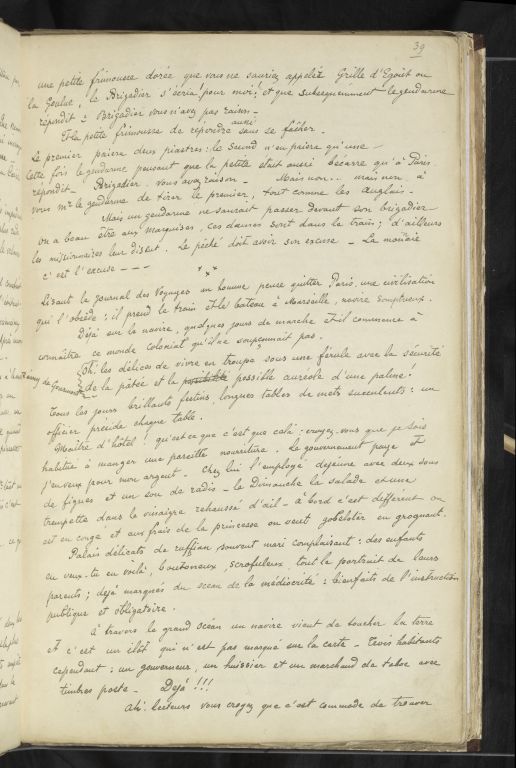 39
une petite frimousse dorée que vous ne sauriez appeler Grille d'Egout ou
la Goulue, le Brigadier s'écria pour moi! et que subsequemment le gendarme
repondit: Brigadier vous n'avez pas raison.
Et la petite frimousse de repondre aussi sans se fâcher.
Le premier paiera deux piastres: le second n'en paiera qu'une.
Cette fois le gendarme pensant que la petite était aussi bécarre qu'à Paris
repondit - Brigadier vous avez raison - Mais non.. mais non, à
vous Mr le gendarme de tirer le premier, tout comme les Anglais -
Mais un gendarme ne saurait passer devant son brigadier -
on a beau être aux Marquises, ces dames sont dans le train; d'ailleurs
les missionnaires leur disent. Le péché doit avoir son excuse - La monnaie
c'est l'excuse - - -
x x x
Lisant le Journal des Voyages un homme pense quitter Paris, une civilisation
qui l'obsède: il prend le train et le bateau à Marseille, navire somptueux.
Déjà sur le navire, quelques jours de marche et il commence à
connaître ce monde colonial qu'il ne soupçonnait pas.
Oh! les délices de vivre en troupe sous une férule avec la sécurité
Remy de Gourmont de la pâtée et la possibilité possible auréole d'une palme!
Tous les jours brillants festins, longues tables de mets succulents: un
officier préside chaque table.
Maître d'hôtel! qu'est ce que c'est que celà: croyez vous que je sois
habitué à manger une pareille nourriture. Le gouvernement paye et
j'en veux pour mon argent - Chez lui l'employé dejeune avec deux sous
de figues et un sou de radis - le Dimanche la salade et une
trempette dans le vinaigre rehaussé d'ail - à bord c'est different on
est en congé et aux frais de la princesse on veut gobeloter en groquant.
Palais délicats de ruffian souvent mari complaisant: des enfants
en veux-tu en voilà, boutonneux, scrofuleux, tout le portrait de leurs
parents; dejà marqués du sceau de la médiocrité: bienfaits de l'instruction
publique et obligatoire.
à travers le grand océan un navire vient de toucher la terre
Et c'est un îlot qui n'est pas marqué sur la carte - Trois habitants
cependant: un gouverneur, un huissier et un marchand de tabac avec
timbres poste - Déjà!!!
Ah! lecteurs vous croyez que c'est commode de trouver